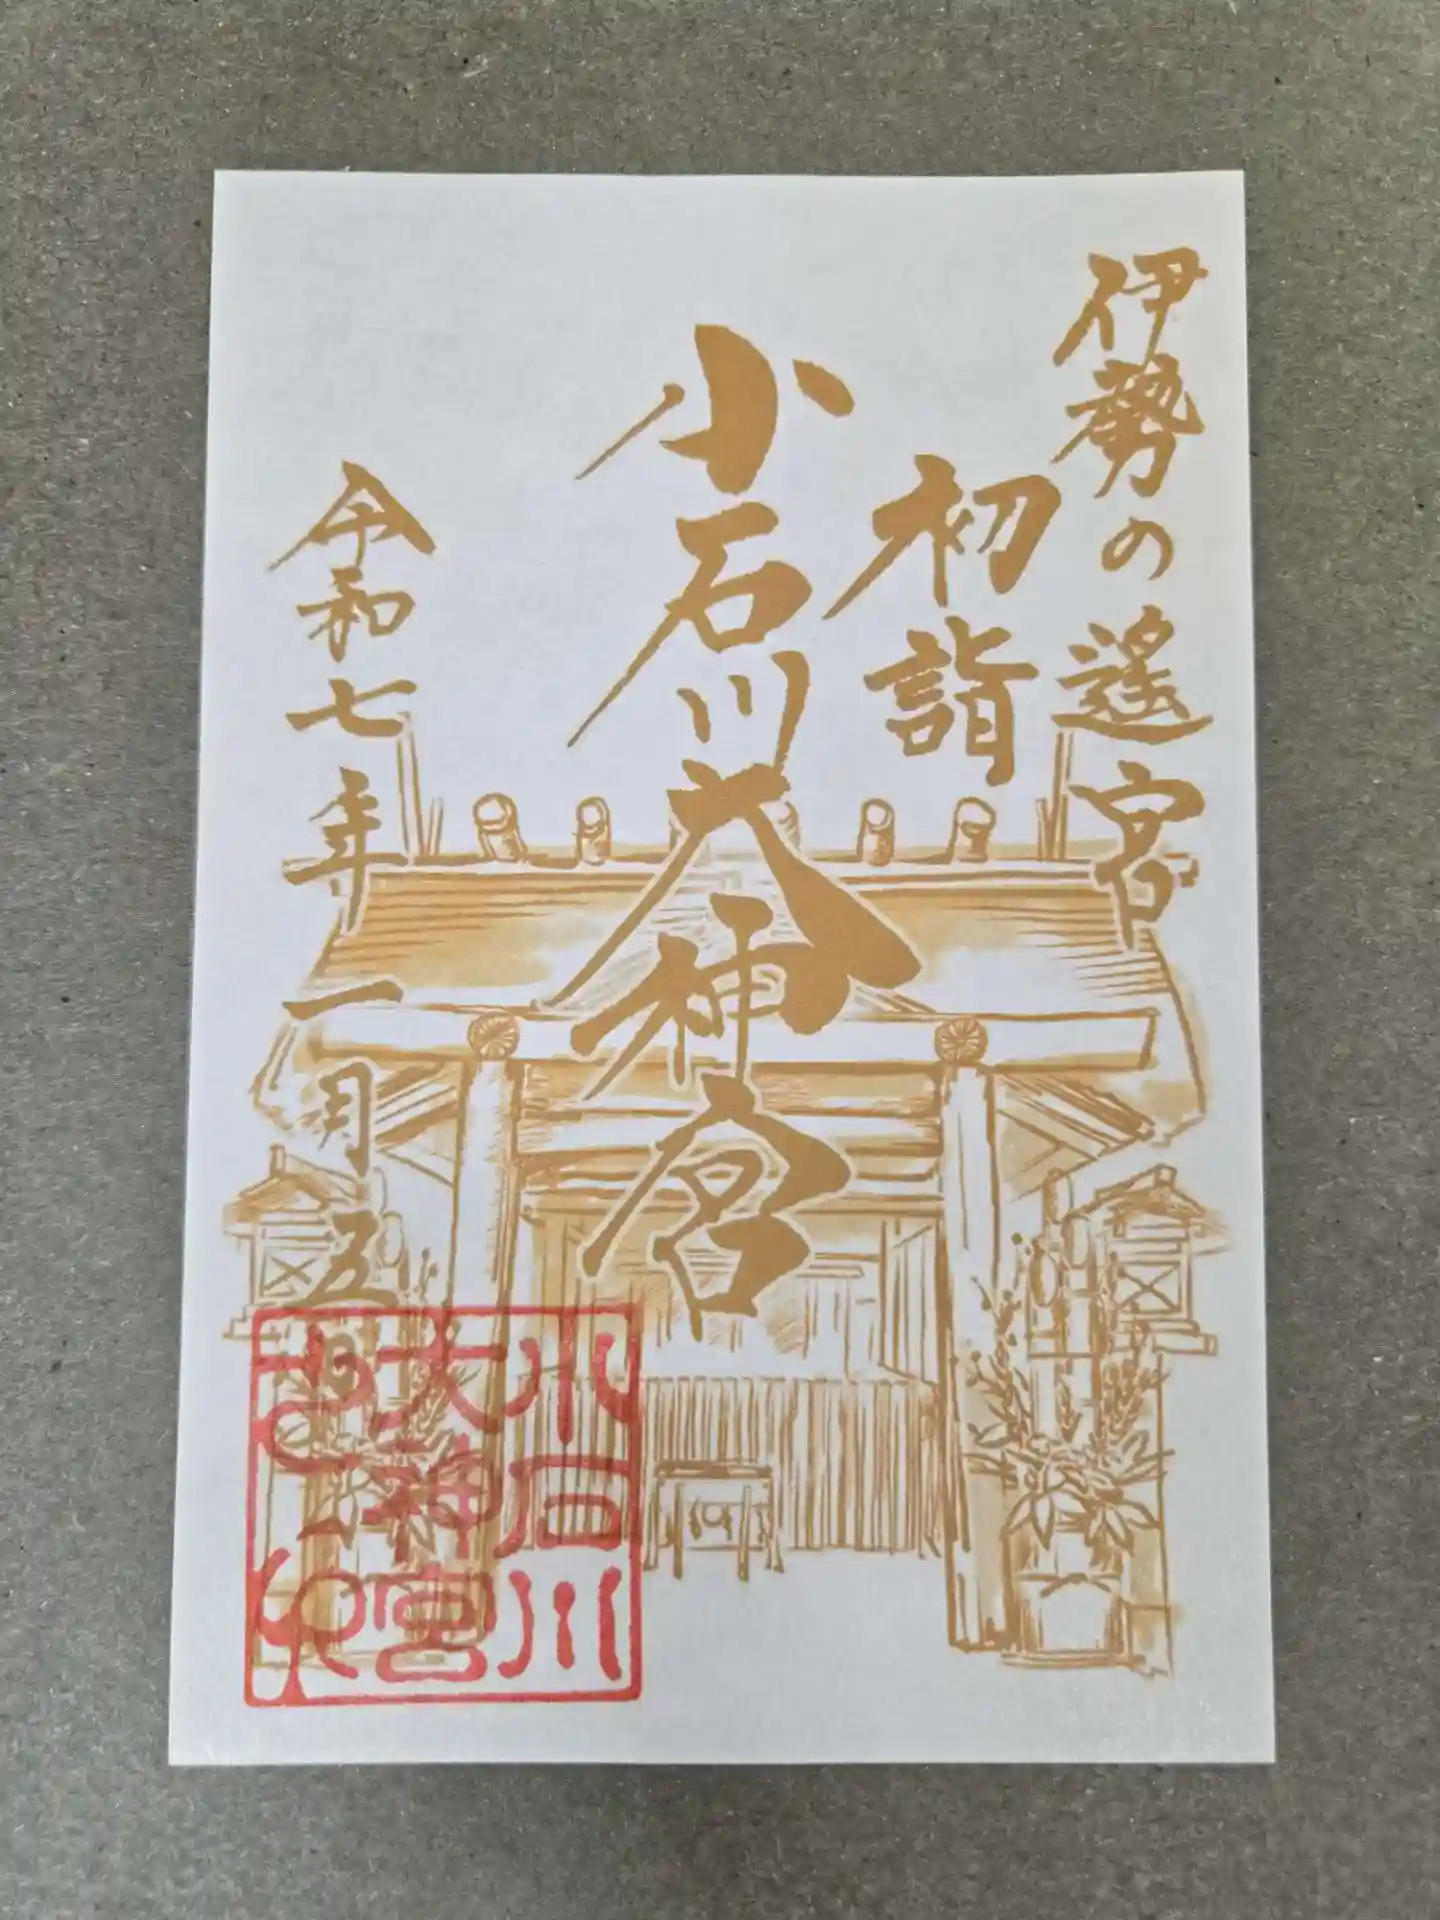 伊勢の遥宮
初詣
小石川大神宮
令和七年一月五日
小石川
大神宮